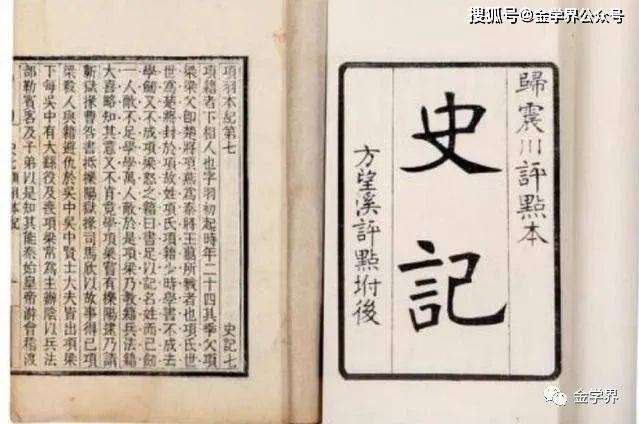 搜狐号@金学界公众号
歸震川評點本
史記
方望溪評點坿後
項羽本紀第七 史記七
項籍者下相人也字羽初起時年二十四其季父項
梁梁父即楚將項燕爲秦將王翦所戮者也項氏世
世爲楚將封於項故姓項氏項籍少時學書不成去
學劒又不成項梁怒之籍曰書足以記名姓而已劒
一人敵不足學學萬人敵於是項梁乃教籍兵法籍
大喜略知其意又不肯竟學項梁嘗有櫟陽逮乃請
蘄獄掾曹咎書抵櫟陽獄掾司馬欣以故事得已項
梁殺人與籍避仇於吳中吳中賢士大夫皆出項梁
下每吳中有大繇役及喪項梁常爲主辦陰以兵法
部勒賓客及子弟以是知其能秦始皇帝游會稽渡
金学界